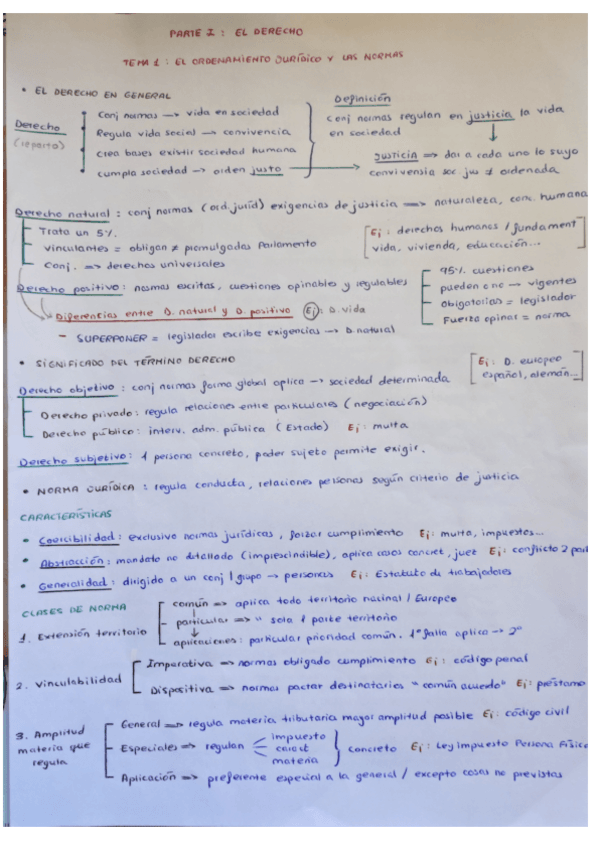 PARTE I : EL DERECHO
TEMA 1 : EL ORDENAMIENTO JURÍDICO Y LAS NORMAS
• EL DERECHO EN GENERAL
Derecho (reparto)
• Conj normas → vida en sociedad
• Regula vida social → convivencia
• Crea bases existir sociedad humana
• cumpla sociedad → orden justo
Definición
conj normas regulan en justicia la vida
en sociedad
justicia ⇒ dar a cada uno lo suyo
convivencia soc. jus ≠ ordenada
Derecho natural : conj normas (ord. juríd) exigencias de justicia ⇒ naturaleza, conv. humana
Trata un 5%.
vinculantes = obligan ≠ promulgadas Parlamento
Conj. ⇒ derechos universales
Ej : derechos humanos / fundament
vida, vivienda, educación...
Derecho positivo : normas escritas, cuestiones opinables y regulables
95% cuestiones
pueden o no → vigentes
obligatorias = legislador
Fuerza opinar = norma
Diferencias entre D. natural y D. positivo Ej : D. vida
– SUPERPONER = legislador escribe exigencias → D. natural
• SIGNIFICADO DEL TÉRMINO DERECHO
Derecho objetivo : conj normas forma global aplica → sociedad determinada
Ej : D. europeo
español, alemán...
Derecho privado : regula relaciones entre particulares (negociación)
Derecho público : interv. adm. pública (Estado) Ej : multa
Derecho subjetivo : 1 persona concreto, poder sujeto permite exigir.
• NORMA JURÍDICA : regula conducta, relaciones personas según criterio de justicia
CARACTERÍSTICAS
• Coercibilidad : exclusivo normas jurídicas, forzar cumplimiento Ej : multa, impuestos...
• Abstracción : mandato no detallado (imprescindible), aplica casos concret, juez Ej : conflicto 2 part
• Generalidad : dirigido a un conj / grupo → personas Ej : Estatuto de trabajadores
CLASES DE NORMA
1. Extensión territorio
común ⇒ aplica todo territorio nacinal / Europeo
particular ⇒ " solo 1 parte territorio
aplicaciones : particular prioridad común. 1º falla aplica → 2º
2. Vinculabilidad
Imperativa ⇒ normas obligado cumplimiento Ej : código penal
Dispositiva ⇒ normas pactar destinatarios "común acuerdo" Ej : préstamo
3. Amplitud materia que regula
General ⇒ regula materia tributaria mayor amplitud posible Ej : código civil
Especiales ⇒ regulan impuesto caract materia concreto Ej : Ley Impuesto Persona Física
Aplicación ⇒ preferente especial a la general / excepto cosas no previstas